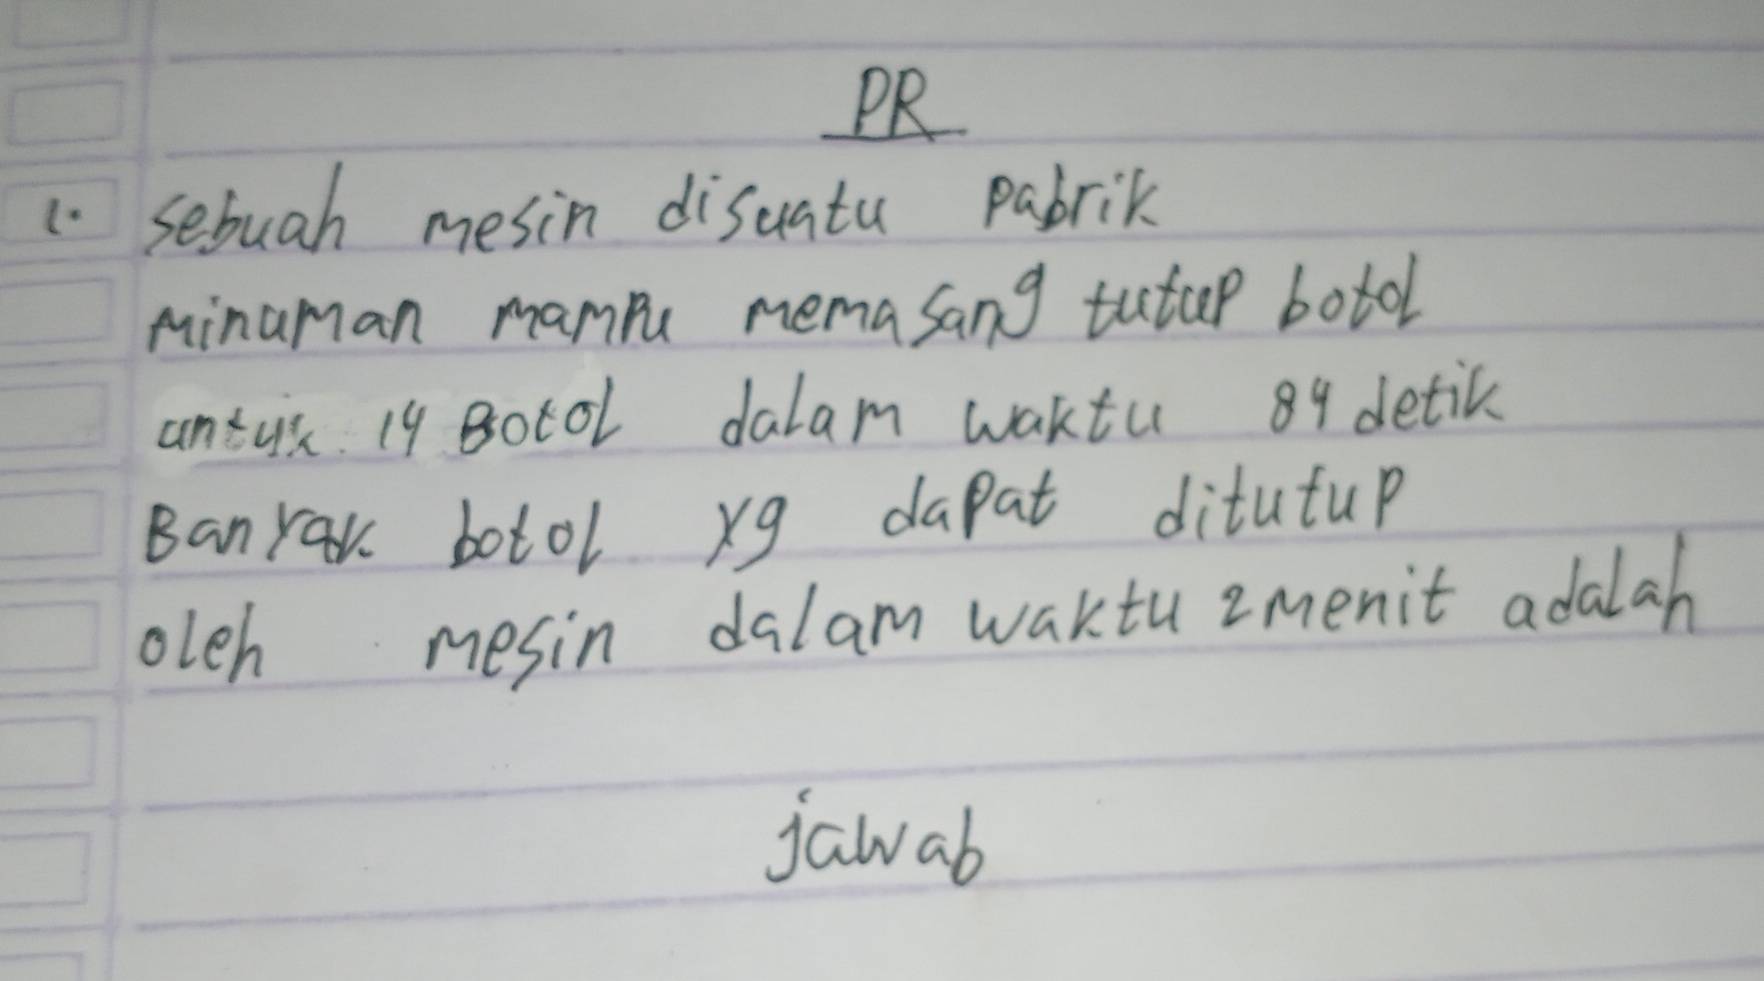 PR
1. sebuah mesin disuatu pabrik
minuman mampu memasang tutup botol
untuk 14 Botol dalam waktu 84 detik
Banyak botol yg dapat ditutup
oleh mesin dalam waktu 2 menit adalah
jawab